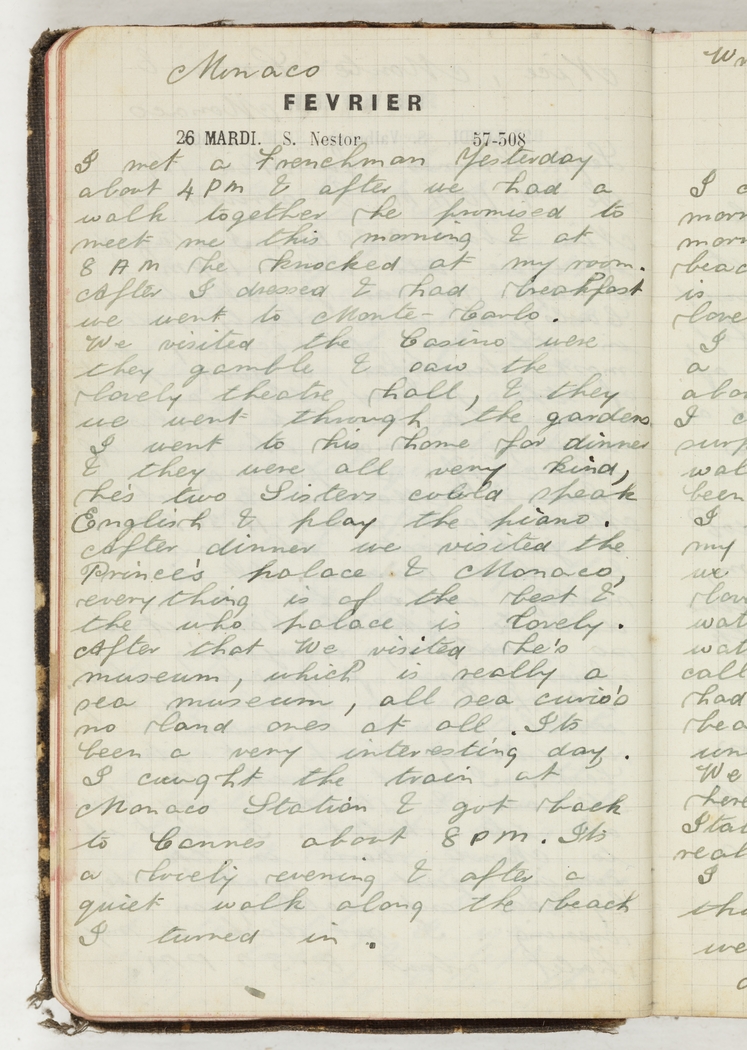 Monaco
FEVRIER
26 MARDI. S. Nestor 57-308
I met a Frenchman Yesterday
about 4 PM & after we had a
walk together he promised to
meet me this morning & at
8 AM he knocked at my room.
After I dressed & had breakfast
we went to Monte-Carlo.
We visited the Casino were
they gamble & saw the
lovely theatre hall, & they
we went through the gardens
I went to his home for dinner
& they were all very kind,
he's two Sisters could speak
English & play the piano.
After dinner we visited the
Prince's palace & Monaco,
everything is of the best &
the who palace is lovely.
After that We visited he's
museum, which is really a
sea museum, all sea curio's
no land ones at all. Its
been a very interesting day.
I caught the train at
Monaco Station & got back
to Cannes about 8 PM. Its
a lovely evening & after a
quiet walk along the beach
I turned in.
I
is
love
I
a
I
been
I
my
we
call
had
We
I
we